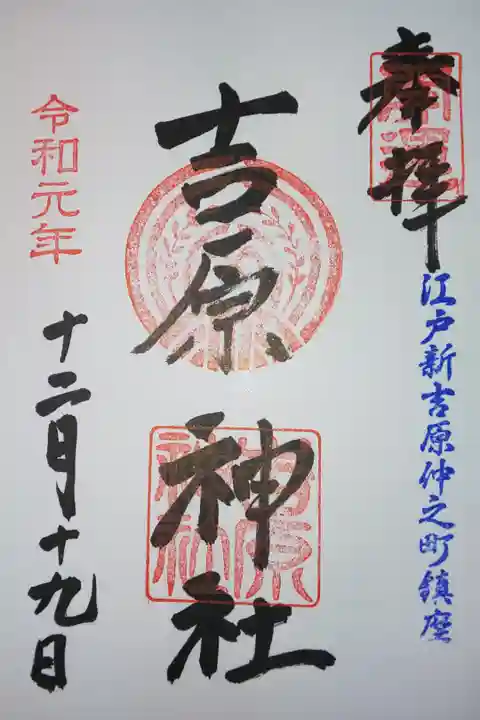 奉拝
江戸新吉原仲之町鎮座
吉原神社
吉原神社
令和元年
十二月十九日